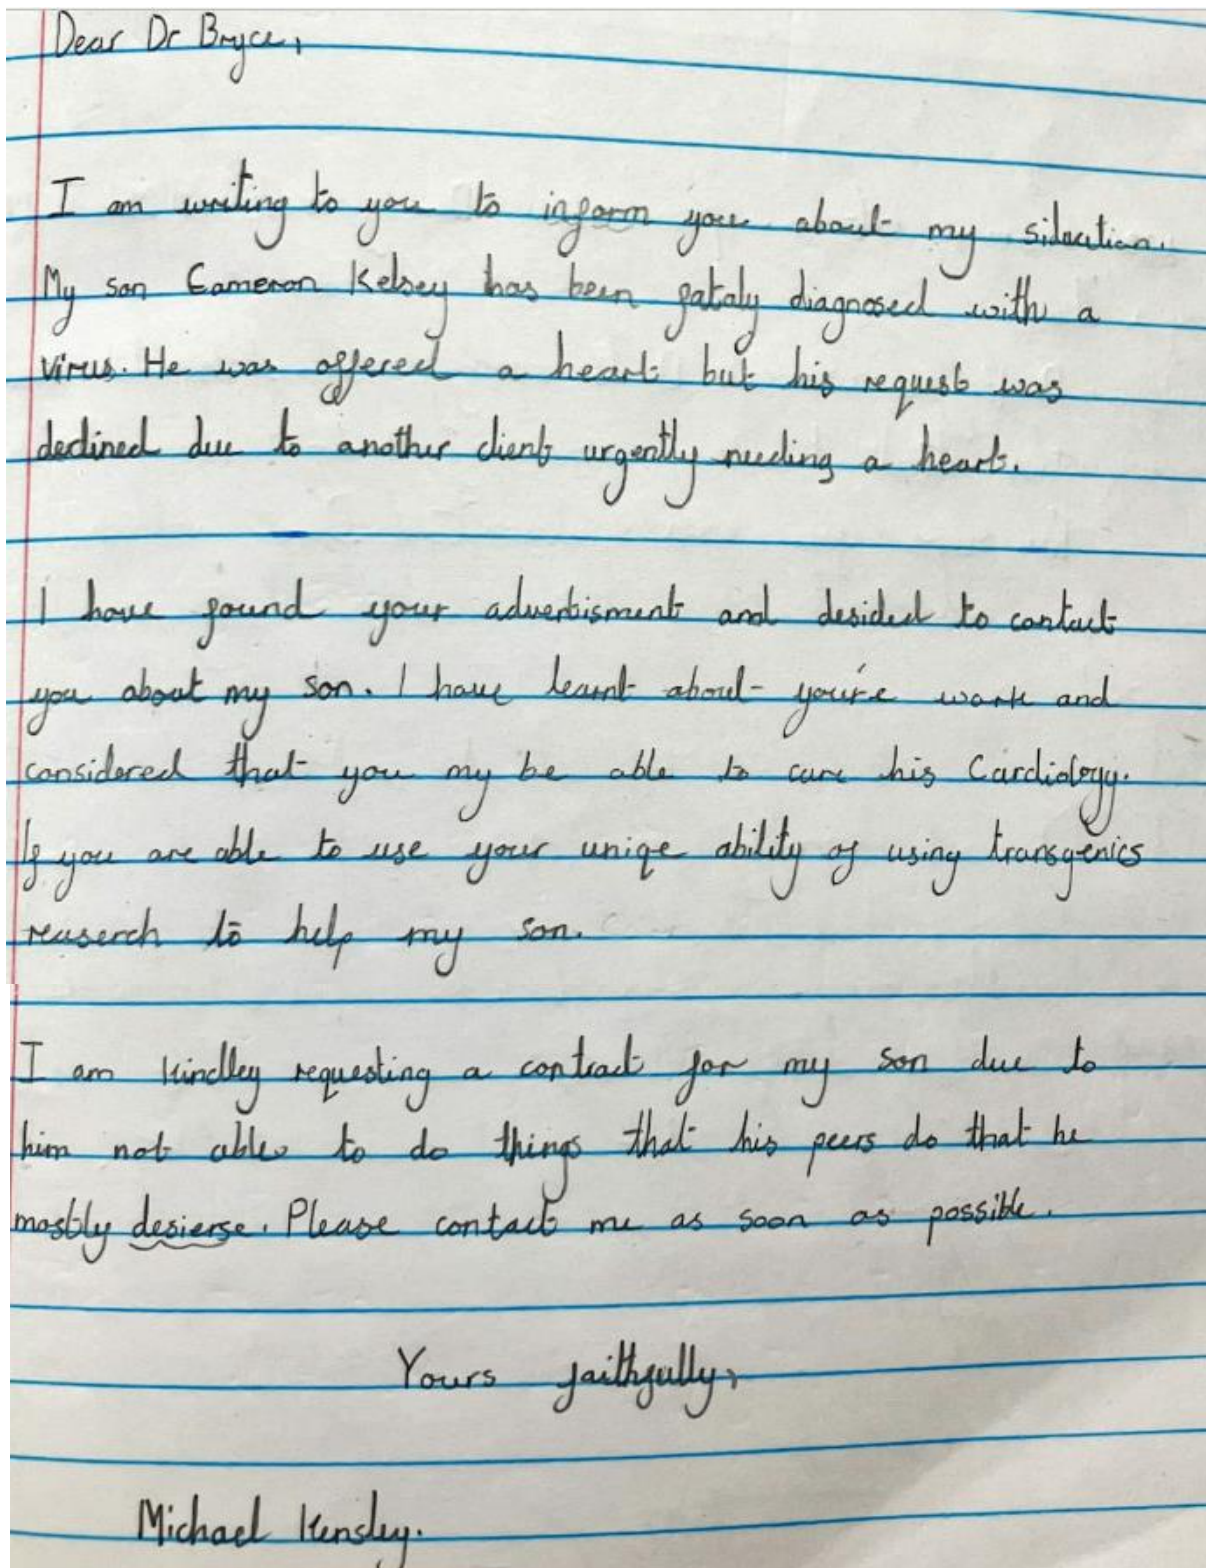 Dear Dr Bryce,
I am writing to you to inform you about my situation.
My son Cameron Kelsey has been fataly diagnosed with a
virus. He was offered a heart but his request was
declined due to another client urgently needing a heart.
I have found your advertisment and desided to contact
you about my son. I have learnt about you're work and
considered that you my be able to cure his Cardiology.
If you are able to use your uniqe ability of using transgenics
reaserch to help my son.
I am kindley requesting a contract for my son due to
him not able to do things that his peers do that he
mostly desierse. Please contact me as soon as possible.
Yours faithfully,
Michael Kensley.